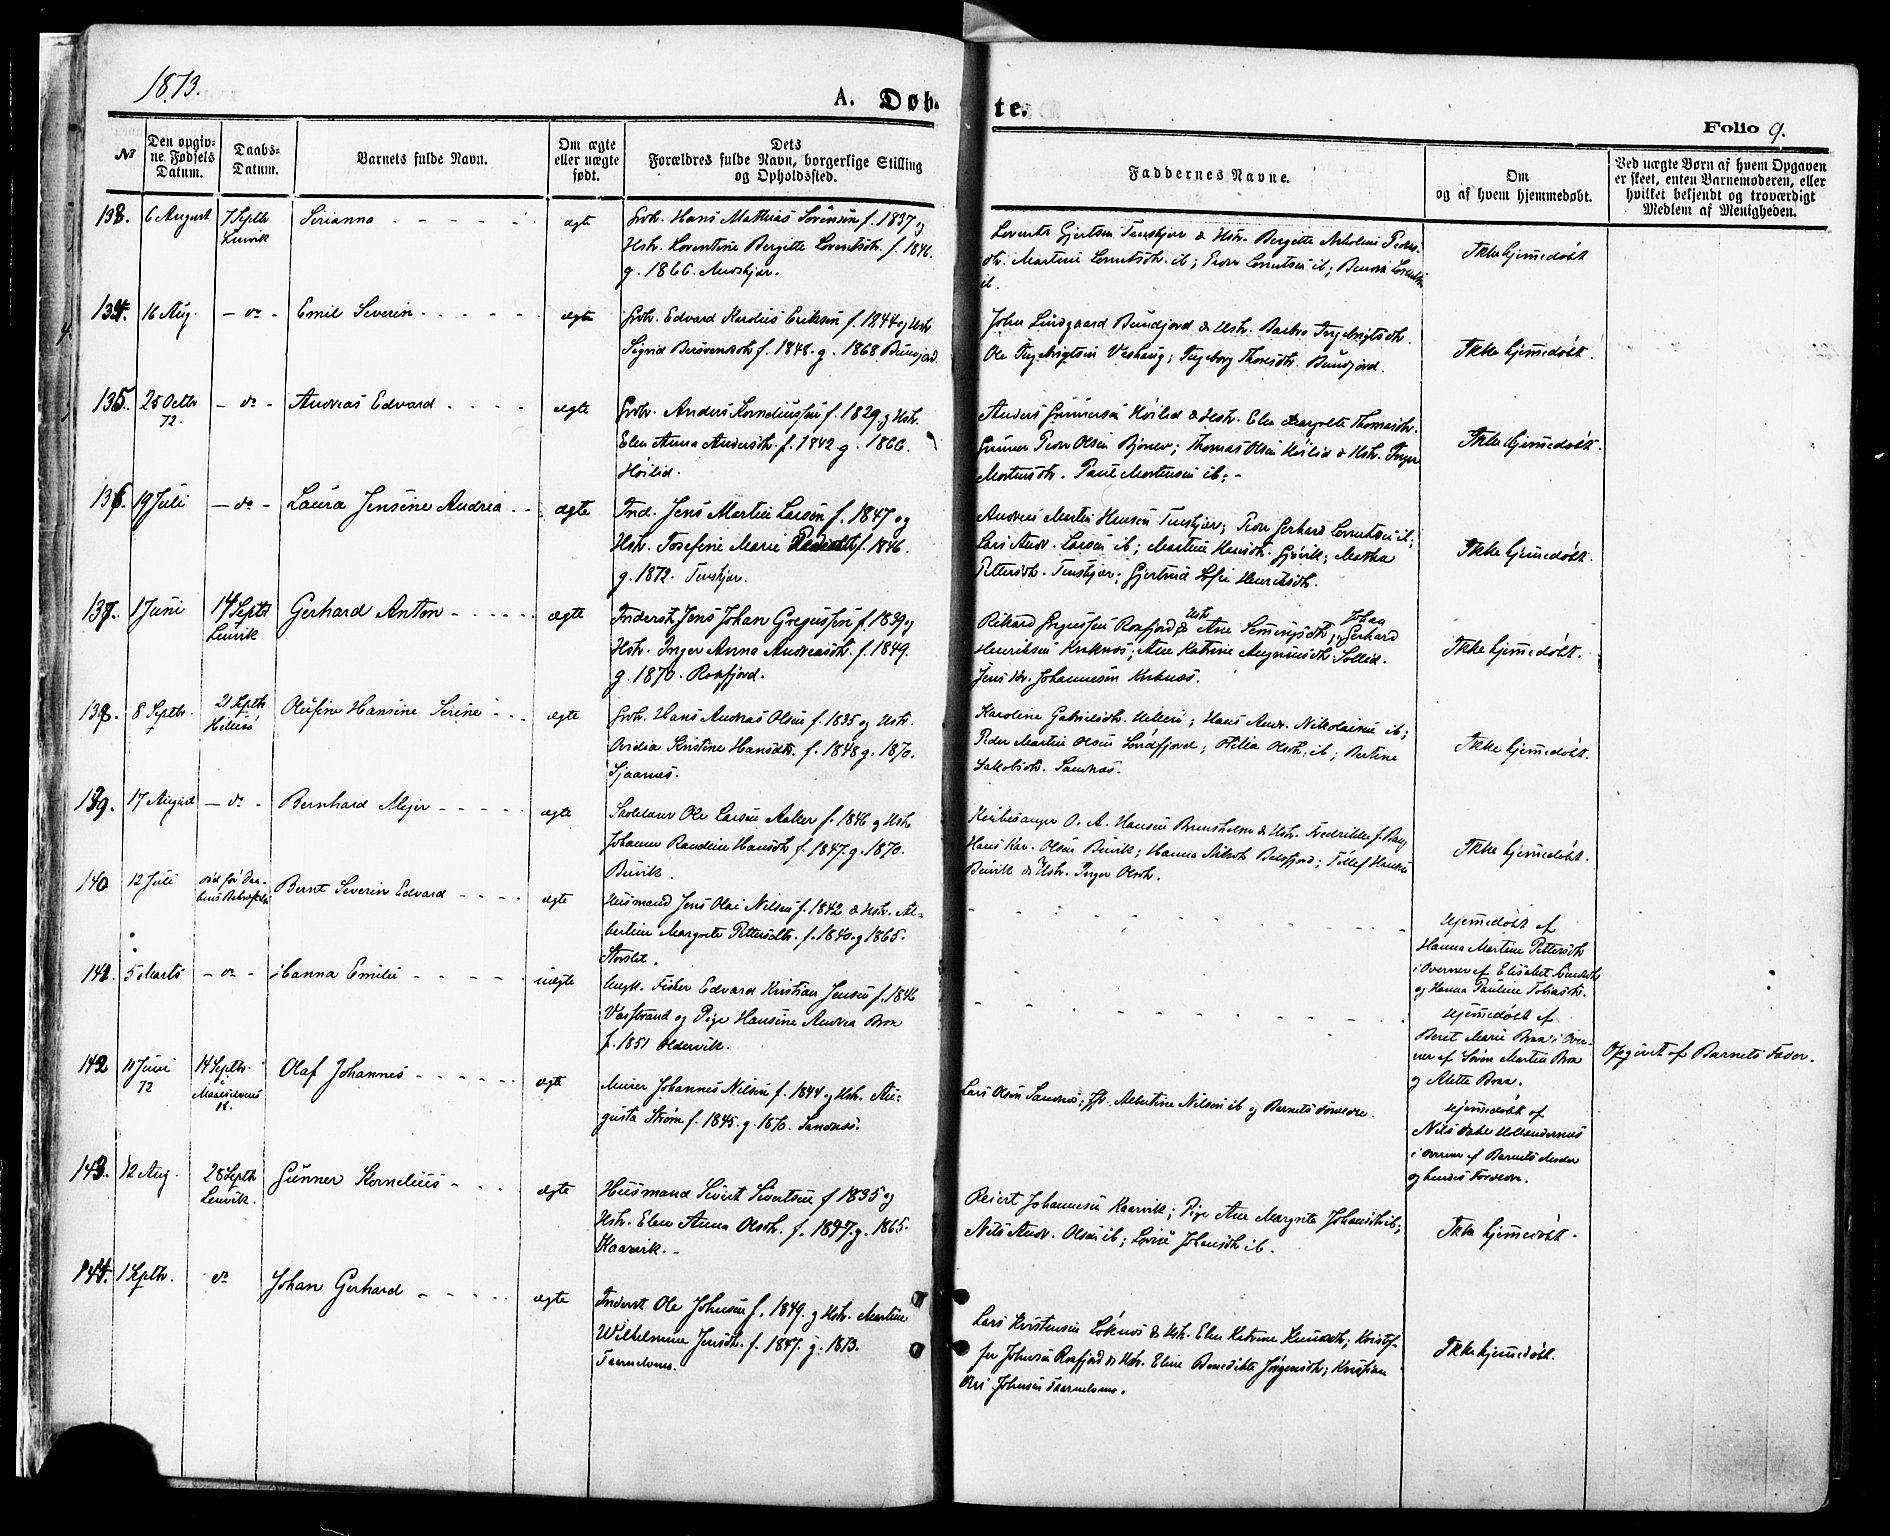 1873.
A. Døb te.
Folio 9.
№
Den opgivne Fødsels Datum.
Daabs-Datum.
Barnets fulde Navn.
Om ægte eller uægte født.
Dets Forældres fulde Navn, borgerlige Stilling og Opholdssted.
Faddernes Navne.
Om og af hvem hjemmedøbt.
Ved uægte Børn af hvem Opgaven er skeet, enten Barnemoderen, eller hvilket bekjendt og troværdigt Medlem af Menigheden.
133. 6 August 7 Septbr Lenvik Serianna ægte
Grbr. Hans Mathias Sørensen f. 1837 og
Hstr. Lorentine Bergitte Lorentsdtr. f. 1846.
g. 1866.
Martine Lorentsdtr. ib; Peder Lorentsen ib;
Ikke hjemmedøbt
134. 16 Aug. do Emil Severin ægte
Grbr. Edvard Kordius Eriksen f. 1844 og Hstr
Sigrid Bersvendsdtr f. 1848. g. 1868 Bundjord.
John Lindgaard Bundjord & Hstr. Barbro Ingebrigtsdtr.
Ole Ingebrigtsen Veshaug; Ingeborg Thomsdtr. Bundjord.
Ikke hjemmedøbt.
135. 25 Octbr 72. do Andreas Edvard ægte
Grbr. Anders Korneliussen f. 1829 og Hstr.
Elen Anna Andersdtr. f. 1842 g. 1866.
Høilid.
Anders Gunnersen Høilid & Hstr. Elen Margrete Thomasdtr.
Gunner Peder Olsen Bjørnes; Thomas Olsen Høilid & Hstr. Inger
Mortensdtr. Paul Mortensen ib;
Ikke hjemmedøbt.
136. 19 Juli do Laura Jensine Andrea ægte
Ind. Jens Martin Larsen f. 1847 og
Hstr. Josefine Marie f. 1846.
g. 1872. Tenskjær.
Andreas Martin Hansen Tenskjær; Peder Gerhard Lorentsen ib;
Lars Andr. Larsen ib; Martine Hansdtr. Gjøvik; Martha
Pettersdtr. Tenskjær; Gjertrud Sofie Henriksdtr.
Ikke hjemmedøbt.
137. 1 Juni 14 Septbr Lenvik Gerhard Anton ægte
Inderst Jens Johan Gregussen f. 1839 og
Hstr. Inger Anna Andreasdtr. f. 1849.
g. 1870. Rossfjord.
Rikard Gregussen Rossfjord & Hstr Ane Simensdtr; Johan Gerhard
Henriksen Kirknæs; Ane Katrine Sollid.
Jens Johannesen Kirknæs.
Ikke hjemmedøbt.
138. 8 Septbr. 21 Septbr Hillesø Olufine Hansine Serine ægte
Grbr. Hans Andreas Olsen f. 1835 og Hstr.
Kristine Hansdtr. f. 1848 g. 1870.
Karoline Gabrielsdtr. Hillesø; Hans Andr. Nikolaisen ib;
Peder Martin Olsen Sørdfjord; Otilia Olsdtr. ib; Bertine
Jakobsdtr. Sandnæs.
Ikke hjemmedøbt.
139. 17 August do Bernhard Mejer ægte
Skolelærer Ole Larsen Aaker f. 1846 og Hstr
Johanna Randine Hansdtr f. 1847. g. 1870.
Buvik.
Kirkesanger O. A. Hansen Brensholm & Hstr. Fredrikke f.
Hans Chr. Olsen Buvik; Hanna; Tollef Hansen
Buvik & Hstr. Inger Olsdtr.
Ikke hjemmedøbt.
140 12 Juli Bernt Severin Edvard ægte
Husmand Jens Olai Nilsen f. 1842 & Hstr. Albertine
Margrete Pettersdtr. f. 1840. g 1865.
Storslet.
Hjemmedøbt af
Hanna Martine Pettersdtr
i Overvær af Elisabet
og Hanna Pauline Tobiasdtr.
141. 5 Marts do Hanna Emilie uægte
Ungk. Fisker Edvard Kristian Jensen f. 1846
Vasstrand og Pige Hansine Andrea Braa
f. 1851 Oldervik.
Hjemmedøbt af
Beret Marie Braa i Overvær
af Søren Martin Braa
og Alette Braa.
Opgivet af Barnets Fader.
142 10 Juni 72 14 Septbr. i Maalselvens K. Olaf Johannes ægte
Murer Johannes Nilsen f. 1844 og Hstr. Augusta
Strøm f. 1845. g. 1870. Sandnæs.
Lars Olsen Sandnæs; Albertine Nilsen ib og Barnets Forældre.
Hjemmedøbt af
Nils
i Overvær af Barnets Moder
og hendes Forældre.
143. 12 Aug. 28 Septbr Lenvik. Gunner Kornelius ægte
Husmand Sivert Sivertsen f. 1835 og
Hstr. Elen Anna Olsdtr. f. 1847. g. 1865.
Kaarvik.
Reiert Johannesen Kaarvik; Pige Ane Margrete Johansdtr ib;
Nils Andr. Olsen ib; Lovise Johansdtr ib.
Ikke hjemmedøbt.
144. 1 Septbr. do Johan Gerhard ægte
Inderst Ole Johnsen f. 1849. og Hstr. Martine
Wilhelmine Jensdtr. f. 1847. g. 1873.
Taarnelvmo.
Lars Kristensen Løknæs & Hstr. Elen Katrine Knudsdtr; Kristoffer
Johnsen Rossfjord & Hstr. Eline Benedikte Jørgensdtr; Kristian
Johnsen Taarnelvmo.
Ikke hjemmedøbt.